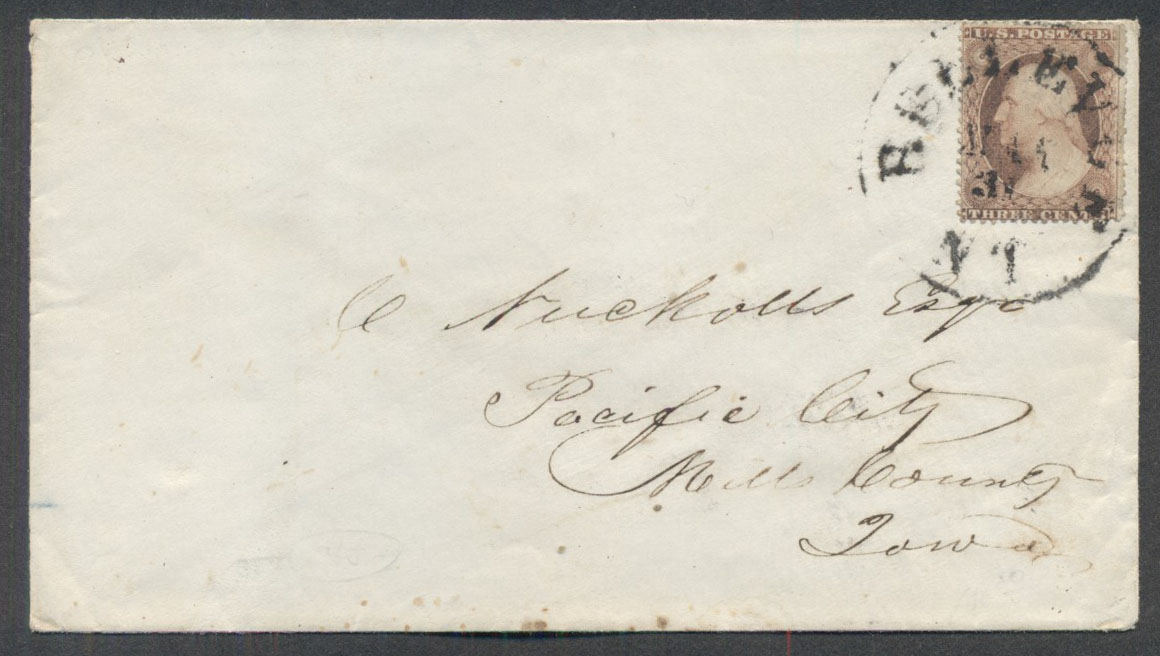 U.S. POSTAGE
THREE CENTS
BELLEVUE
MAY
31
N T
C Nuckolls Esqr
Pacific City
Mills County
Iowa